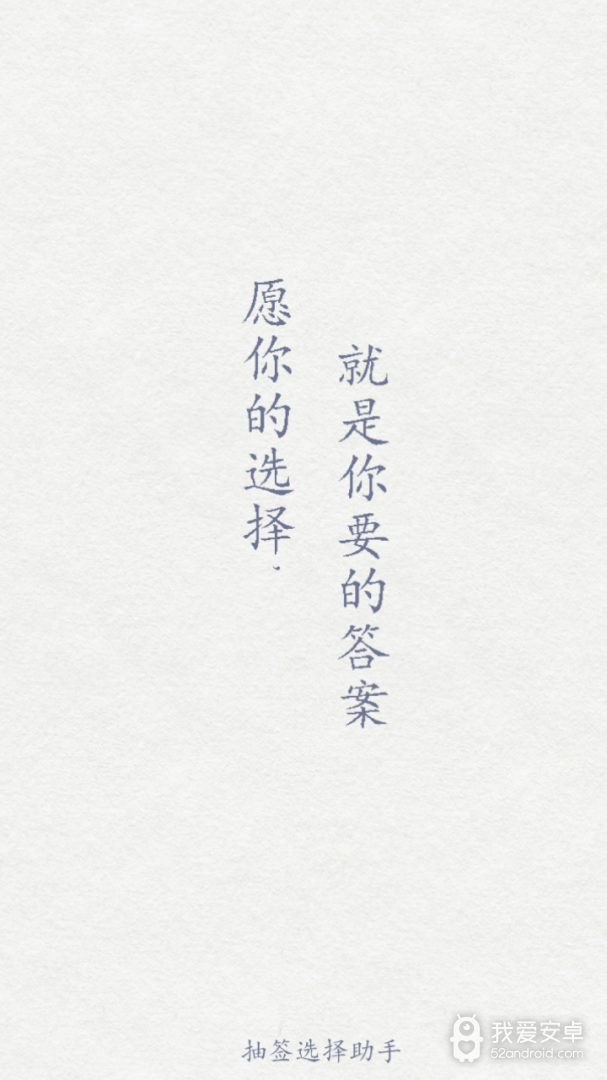 愿你的选择.
就是你要的答案
抽签选择助手
我爱安卓
52android.com